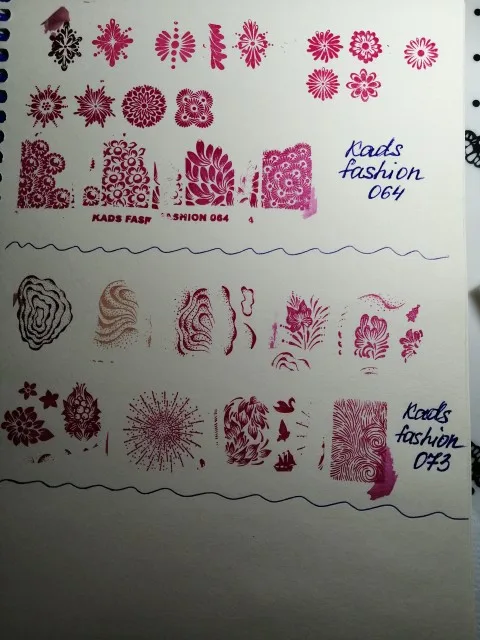 Kads
fashion
064
KADS FASH ASHION 064
Kads
fashion
073